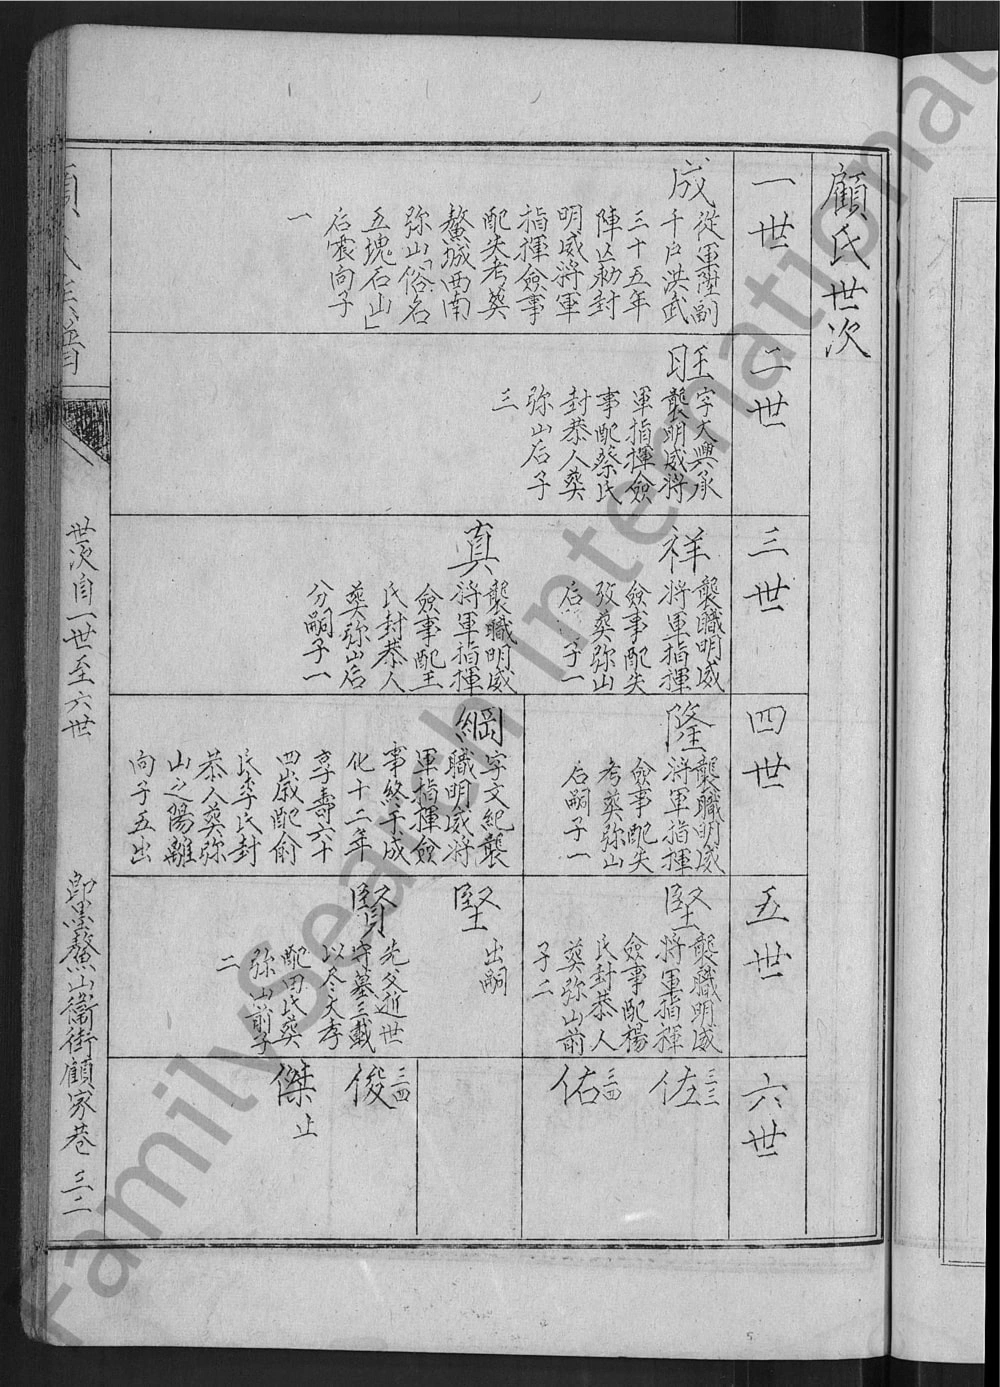 顧氏世次
一世
成
從軍陞副
千戶洪武
三十五年
陣亡勅封
明威將軍
指揮僉事
配失考葬
鰲城西南
弥山「俗名
五塊石山」
后震向子
一
二世
旺
字大興承
襲明威將
軍指揮僉
事配蔡氏
封恭人葬
弥山后子
三
三世
祥
襲職明威
將軍指揮
僉事配失
攷葬弥山
后子一
真
襲職明威
將軍指揮
僉事配王
氏封恭人
葬弥山后
分嗣子一
四世
隆
襲職明威
將軍指揮
僉事配失
考葬弥山
后嗣子一
綱
字文紀襲
職明威將
軍指揮僉
事終于成
化十二年
享壽六十
四歲配俞
氏李氏封
恭人葬弥
山之陽離
向子五出
五世
堅
襲職明威
將軍指揮
僉事配楊
氏封恭人
葬弥山前
子二
堅
出嗣
賢
先父逝世
守墓三載
以冬大孝
配田氏葬
弥山前子
二
六世
佐
三三
佑
三四
俊
三四
傑
止
顧氏族譜
世次自一世至六世
即墨鰲山衞街顧家巷
三二
FamilySearch International